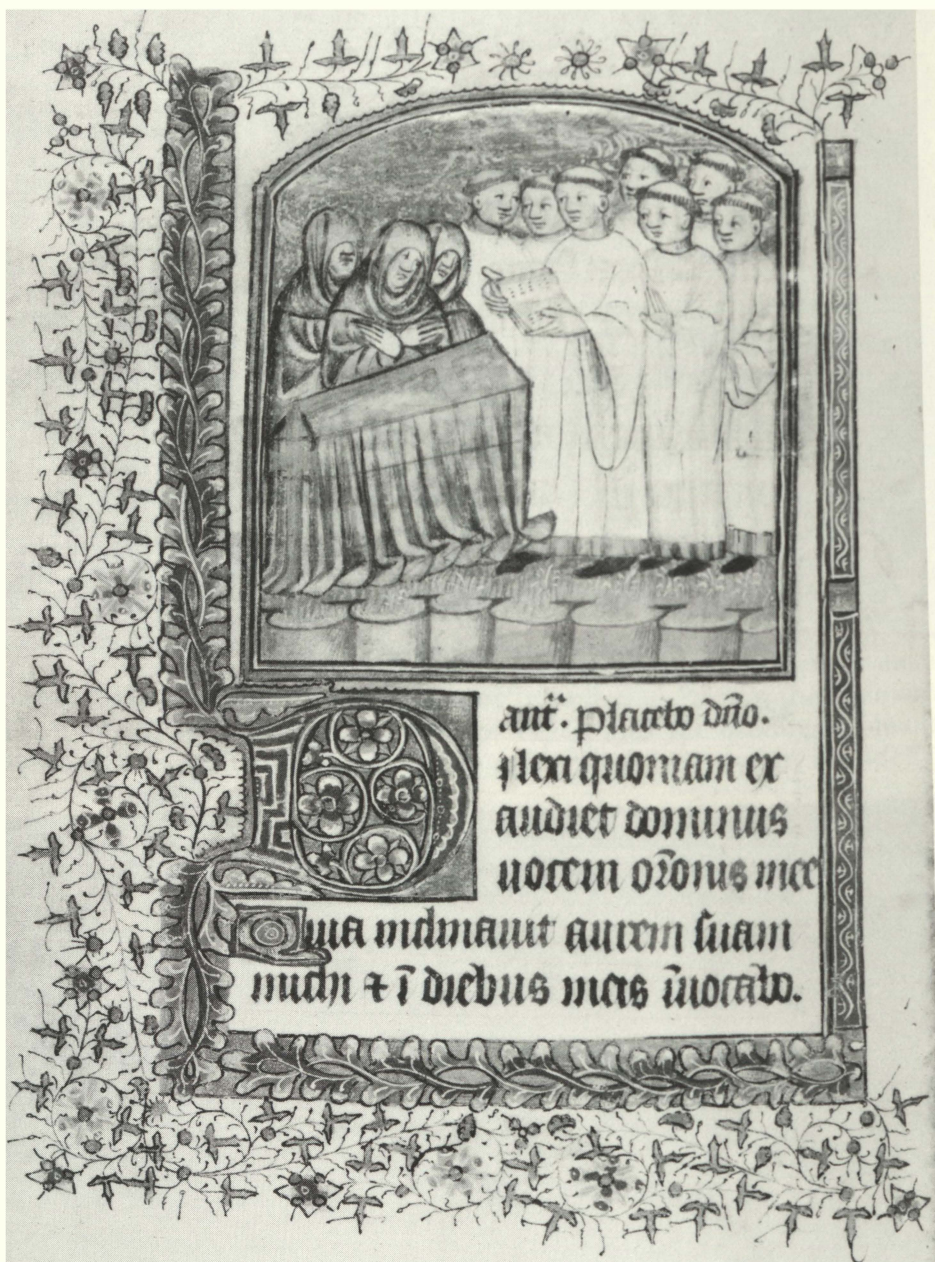 anť. Placebo dño.
Dilexi quoniam ex
audiet dominus
uocem or̃onis mee
Quia inclinauit aurem suam
michi & ĩ diebus meis ĩuocabo.